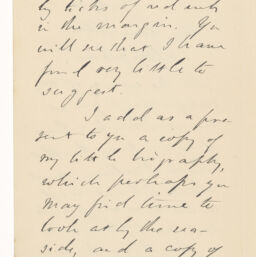 by ticks of red ink
in the margin. You
will see that I have
find very little to
suggest.
I add as a pre
sent to you a copy of
my little biography,
which perhaps you
may find time to
look at by the sea-
side, and a copy of